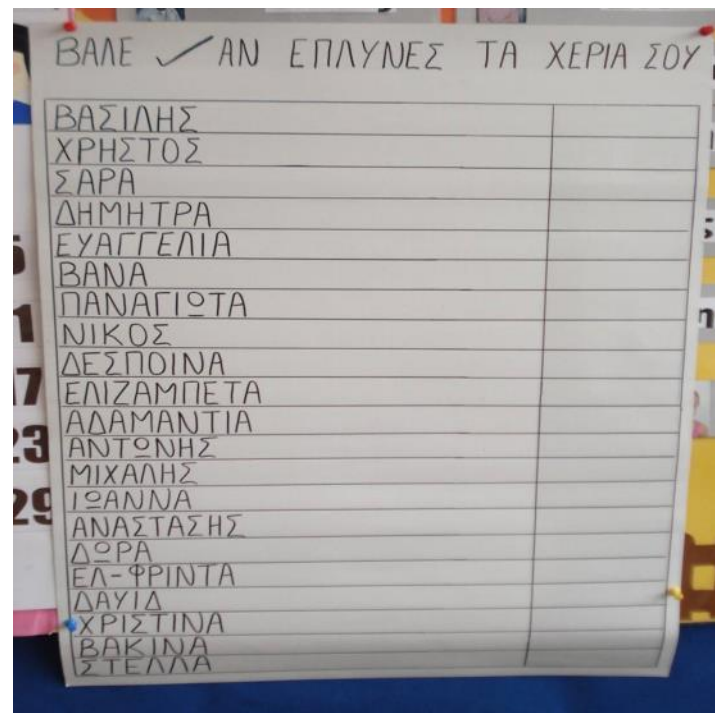 ΒΑΛΕ ✓ ΑΝ ΕΠΛΥΝΕΣ ΤΑ ΧΕΡΙΑ ΣΟΥ
ΒΑΣΙΛΗΣ
ΧΡΗΣΤΟΣ
ΣΑΡΑ
ΔΗΜΗΤΡΑ
ΕΥΑΓΓΕΛΙΑ
ΒΑΝΑ
ΠΑΝΑΓΙΩΤΑ
ΝΙΚΟΣ
ΔΕΣΠΟΙΝΑ
ΕΛΙΖΑΜΠΕΤΑ
ΑΔΑΜΑΝΤΙΑ
ΑΝΤΩΝΗΣ
ΜΙΧΑΛΗΣ
ΙΩΑΝΝΑ
ΑΝΑΣΤΑΣΗΣ
ΔΩΡΑ
ΕΛ-ΦΡΙΝΤΑ
ΔΑΥΙΔ
ΧΡΙΣΤΙΝΑ
ΒΑΚΙΝΑ
ΣΤΕΛΛΑ
17
23
29